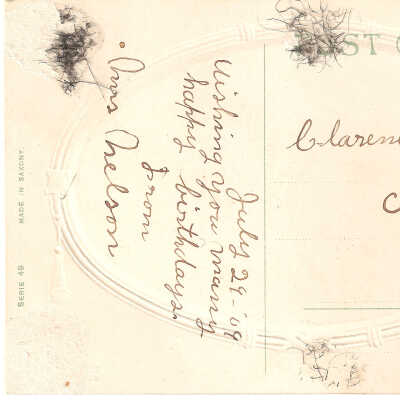 POST C
July 29-'09
Wishing you many
happy birthdays,
from
Avis Nelson
Claren
SERIE 49 MADE IN SAXONY.